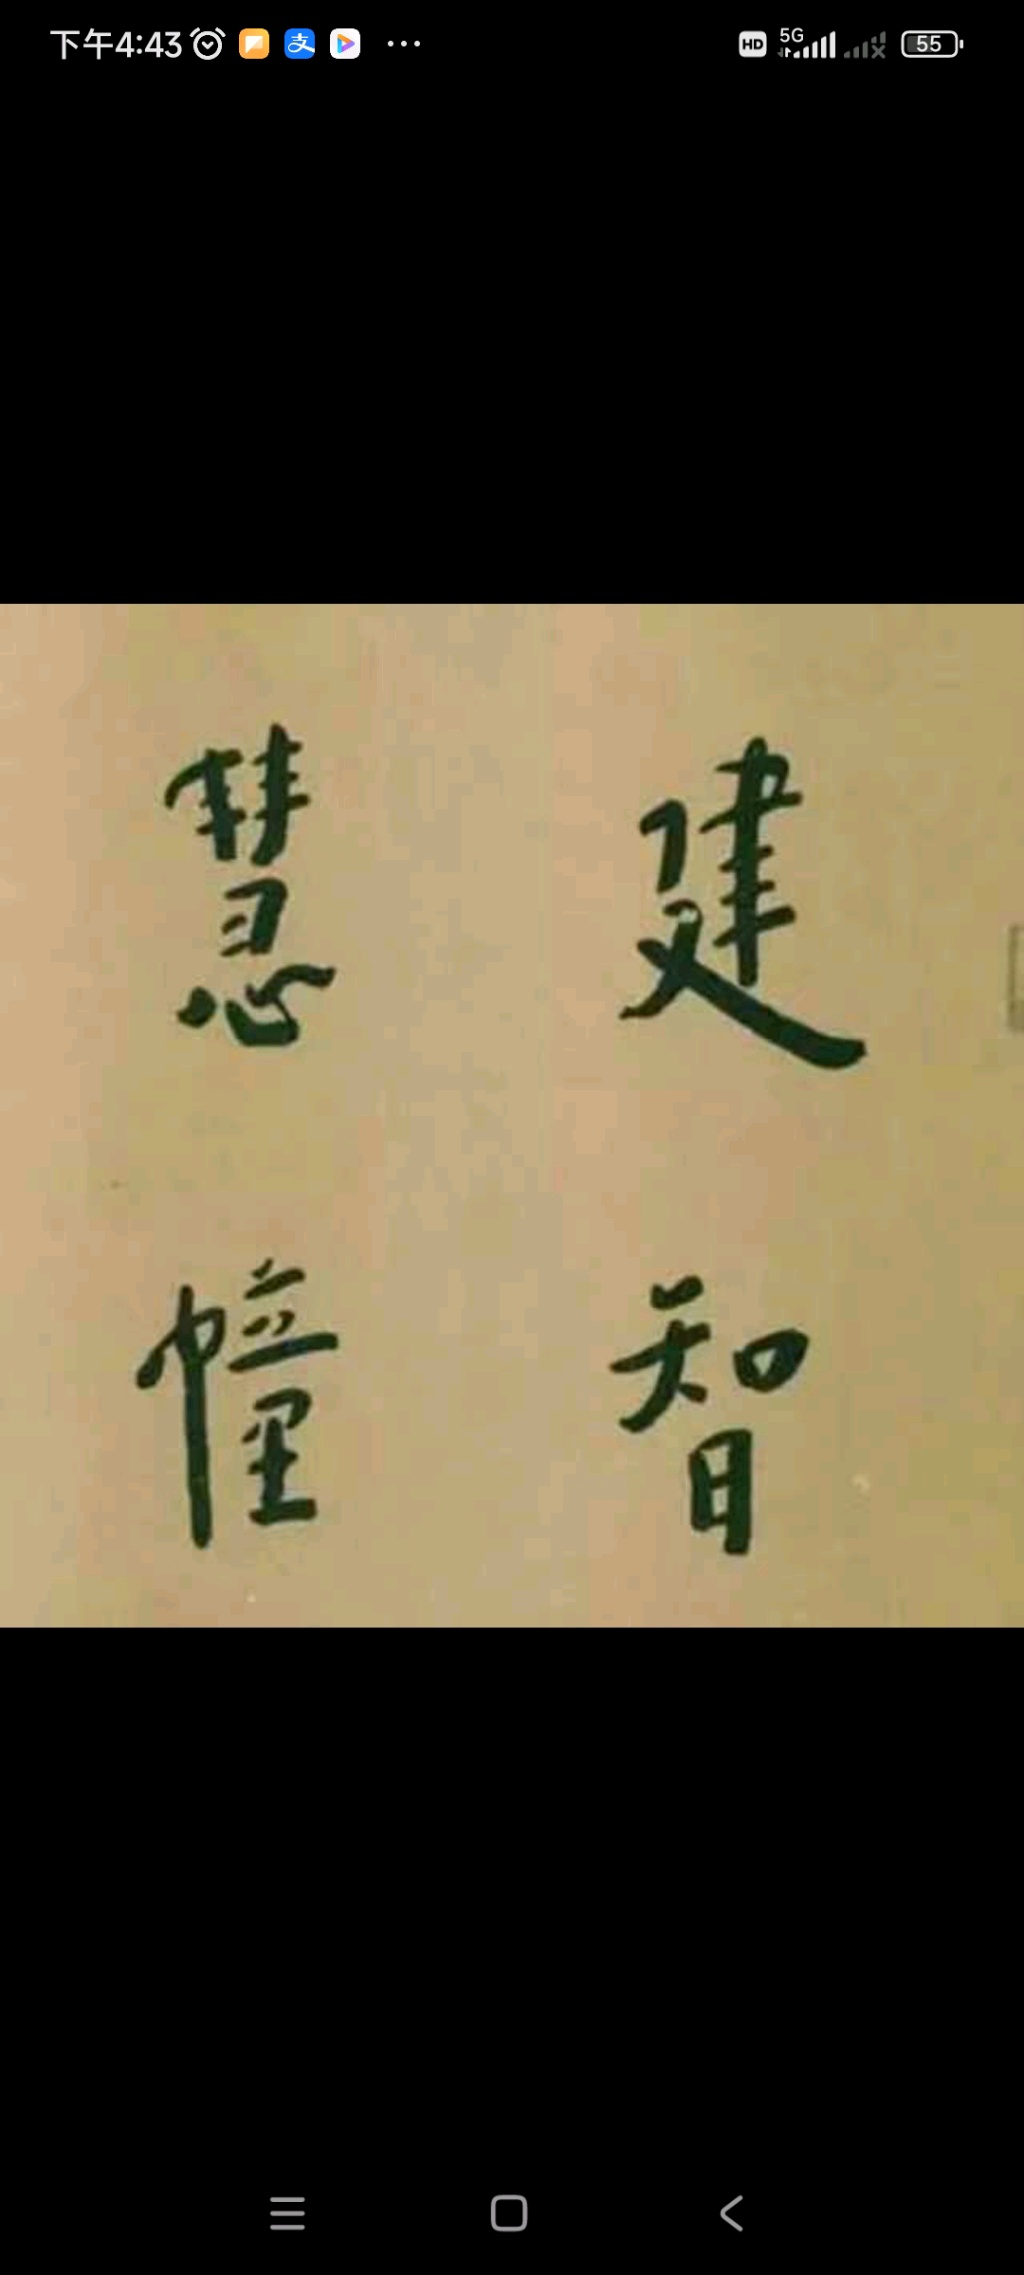 下午4:43
HD 5G 55
建智
慧幢